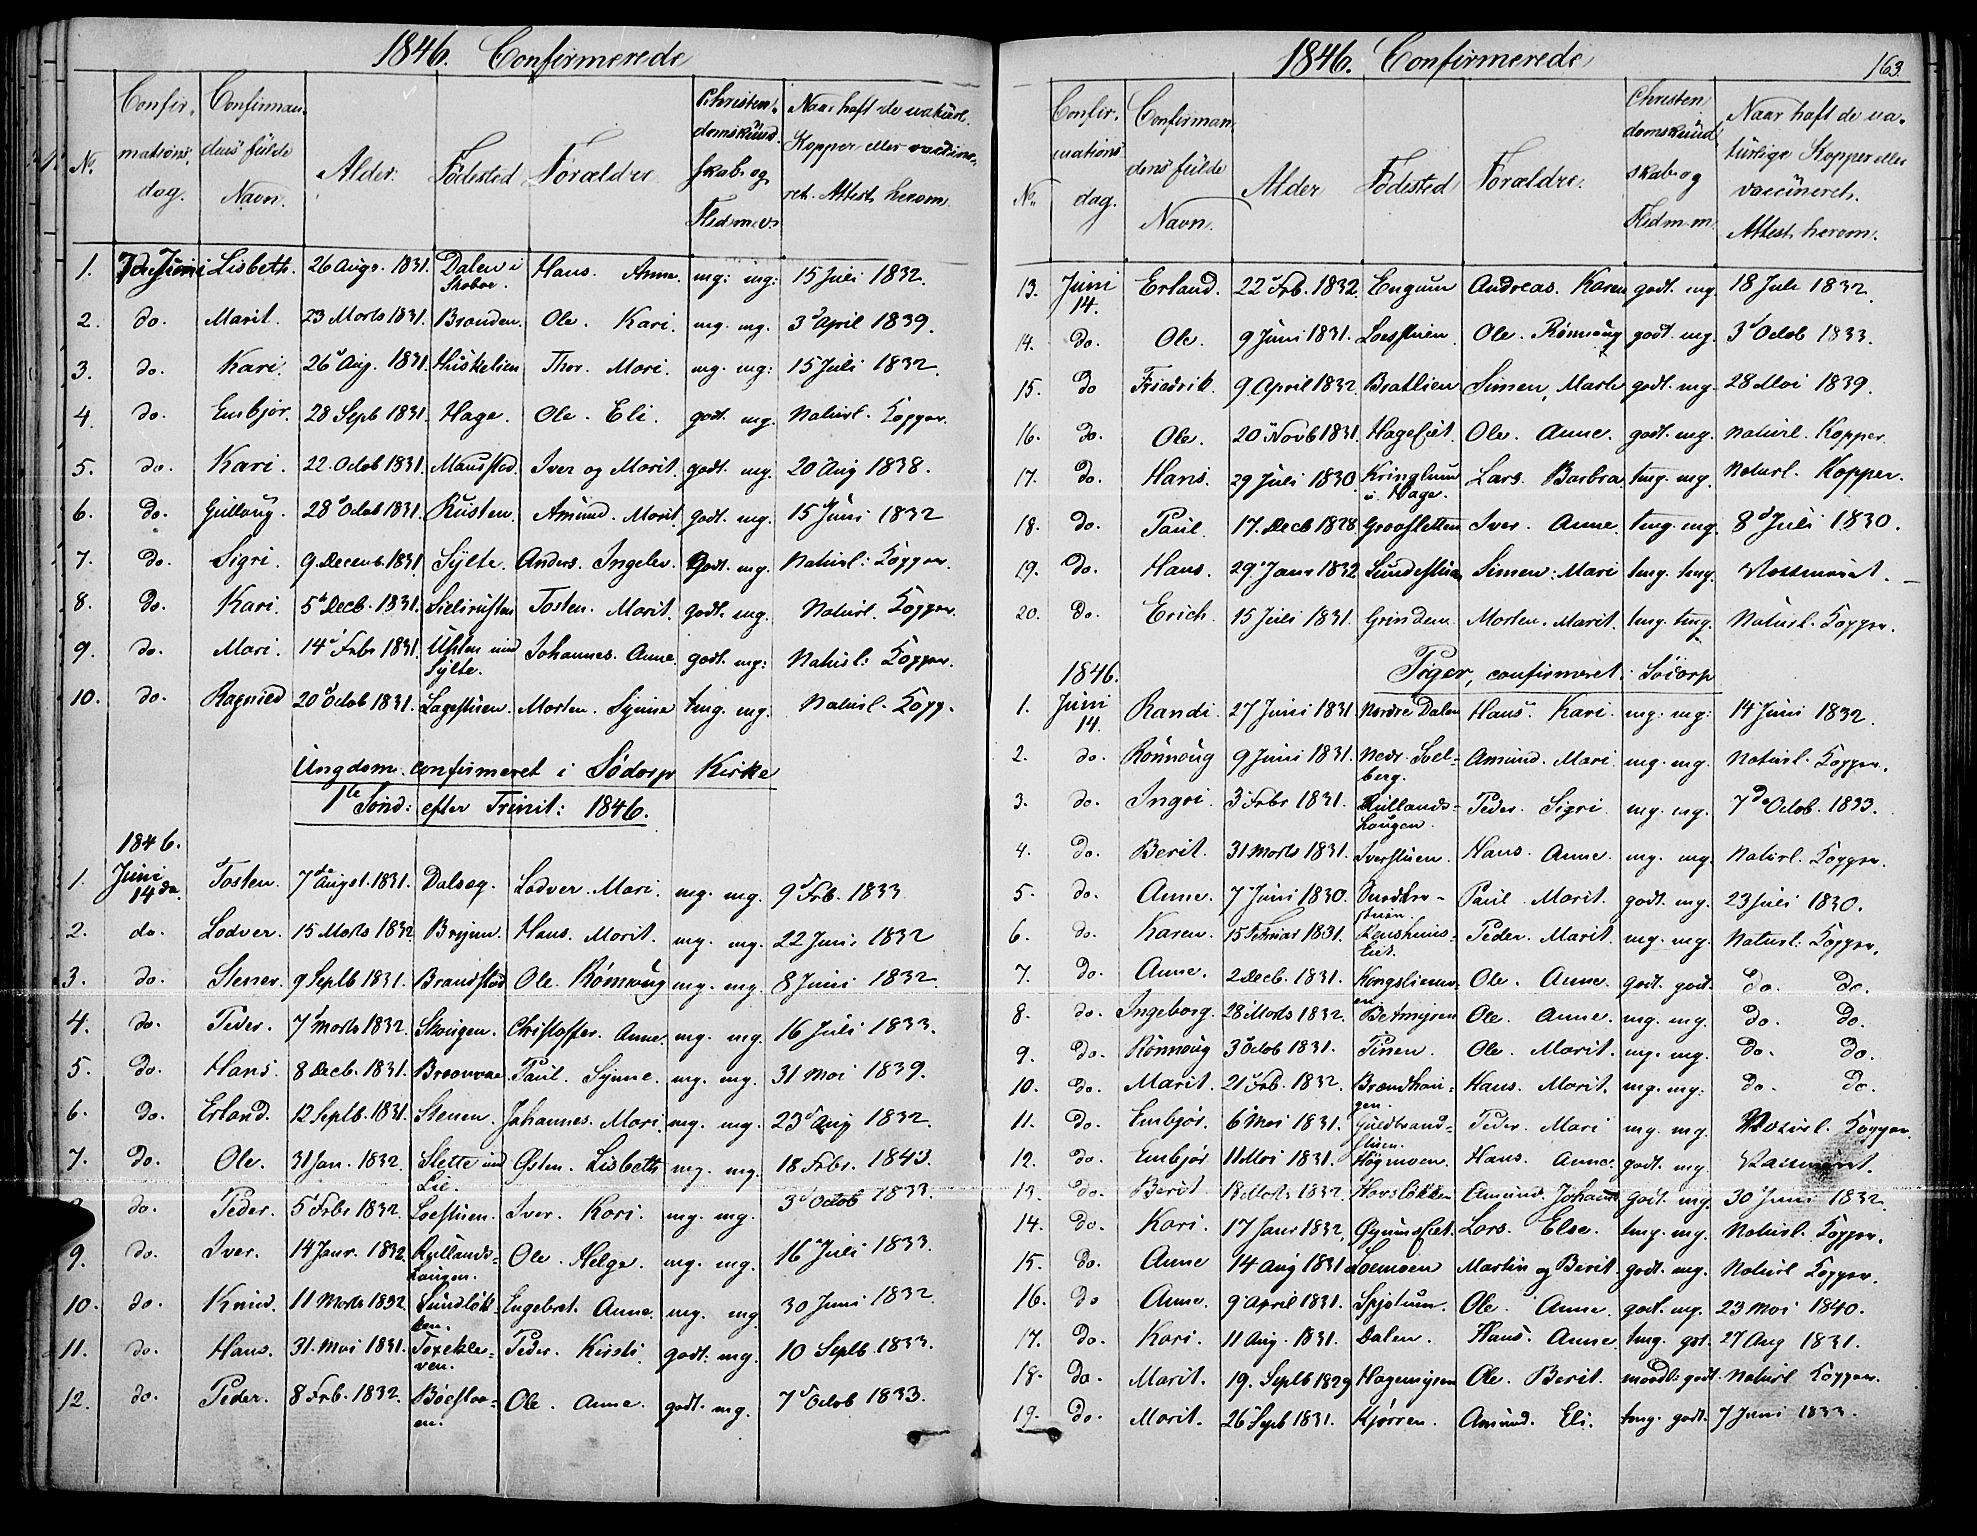 1846. Confirmerede
No. Confirmations dag. Confirmandens fülde Navn. Alder. Födested Forældre Christendomskündskab og Flid m.v. Naar haft de natürl. Kopper eller vaccineret. Attest herom.
1. 7de Juni Lisbeth. 26 Augs. 1831. Dalen i Hans. Anne. mg: mg: 15 Juli 1832.
2. do. Marit. 23 Marts 1831. Branden. Ole. Kari. mg. mg. 3d April 1839.
3. do. Kari. 26d Aug. 1831. Huskelien Thor. Mari. mg. mg: 15 Juli 1832.
4. do. Embjør. 28 Sepb 1831. Hage. Ole. Eli. godt. mg. Natürl. Kopper.
5. do. Kari. 22. Octob 1831. Maüsstad. Iver og Marit. godt. mg. 20 Aug 1838.
6. do. Gullaug. 28d Octob 1831. Rusten. Amund. Marit. godt. mg. 15 Juni 1832
7. do. Sigri. 9. Decemb. 1831. Sylte. Anders. Ingeler. godt. mg. Natürl: Kopper.
8. do. Kari. 5d Decb. 1831. Sielirusten Tosten. Marit. godt. mg. Natürl. Kopper.
9. do. Mari. 14d Febr 1831. Ulsten und Sylte. Johannes. Anne. godt. mg: Natürl: Kopper.
10. do. Ragnied 20d Octob 1831. Lagestuen. Morten. Synne tmg. mg. Natürl. Kopp.
Ungdom confirmeret i Södorp Kirke
1te Sönd: efter Trinit: 1846.
1846.
1. Juni 14de. Tosten. 7de Augst. 1831. Dalseg. Lodver. Mari. mg. mg. 9d Feb. 1833
2. do. Lodver. 15 Marts 1832 Brynn. Hans. Marit. mg. mg. 22 Juni 1832
3. do. Stener. 9 Septb 1831. Brandstad Ole. Rönnaug mg. mg. 8 Juni 1832.
4. do. Peder. 7d Marts 1832. Skougen. Christoffer. Anne. mg. mg. 16 Juli 1833.
5. do. Hans. 8 Decb. 1831. Paul. Synne. mg. mg. 31 Mai 1839.
6. do. Erland. 12 Septb. 1831. Stenen. Johannes. Mari. mg. mg. 23d Aug 1832.
7. do. Ole. 31 Jan. 1832. Slette und Lie. Østen. Lisbeth mg. mg. 18 Febr. 1843.
do. Peder. 5d Febr 1832. Loestuen. Iver. Kari. mg. mg. 3d Octob 1833.
9. do. Iver. 14 Janr. 1832. Rullands-haugen. Ole. Helge. mg. mg. 16d Juli 1833.
10. do. Knud. 11 Marts 1832. Sundløkken. Engebret. Anne. mg. mg 30 Juni 1832.
11. do. Hans. 31. Mai 1831. Toxeklerven. Peder. Kirsti. godt. mg. 10 Septb. 1833.
12. do. Peder. 8 Feb. 1832. Ole. Anne. godt. mg. 7d Octob 1833.
1846. Confirmerede
163.
No. Confirmations dag. Confirmandens fülde Navn. Alder Födested Forældre. Christendomskündskab og Flid m.m. Naar haft de natürlige Kopper eller vaccineret. Attest herom.
13. Juni 14. Erland. 22 Feb. 1832. Engum Andreas. Karen godt. mg. 18 Juli 1832.
14. do. Ole. 9 Juni 1831. Loestuen. Ole. Rønnaug godt. mg. 3d Octob 1833.
15. do Friedrik. 9 April 1832 Bratlien Simen, Marte godt. mg. 28 Mai 1839.
16. do. Ole. 20 Novb 1831. Hageeiet. Ole. Anne. godt. mg. Natürl. Kopper.
17. do. Hans. 29 Juli 1830. Kringlund u. Hage. Lars. Barbra tmg. mg. Natürl. Kopper.
18. do. Paul. 17. Decb 1828 Groosletten Iver. Anne. tmg. mg. 8d Juli 1830.
19. do. Hans. 29d Janr 1832 Sundestuen Simen. Mari tmg. tmg.
20. do. Erich. 15 Juli 1831. Grindem Morten. Marit. tmg. tmg. Natürl. Kopper.
1846. Piger, confirmeret i Södorp
1. Juni 14. Randi. 27 Juni 1831 Nordre Dalen Hans. Kari. mg. mg: 14 Juni 1832.
2. do. Rönnoug 9 Juni 1831. Nedr Soelberg. Amund. Mari. mg. mg. Natürl. Kopper.
3. do. Ingri. 3d Febr 1831. Rullands-haugen. Peder. Sigri mg. mg. 7de Octob. 1833.
4. do. Berit. 31 Marts 1831. Iverstuen. Hans. Anne. mg. mg. Natürl. Kopper.
5. do. Anne. 7 Juni 1830. Paul. Marit. godt. mg. 23 Juli 1830.
6. do. Karen. 15 Februar 1831. Peder. Marit. mg. mg. Natürl. Kopper.
7. do. Anne. 2 Decb. 1831. Kongslien Ole. Anne. godt. godt. do. do.
8. do. Ingeborg. 28 Marts 1832. Betmyren Ole. Anne. mg. mg. do. do.
9. do. Rønnoug 3d Octob 1831. Tinen. Ole. Marit. mg. mg. do. do.
10. do. Marit. 21d Feb. 1832. Brændhaugen. Hans. Marit. mg. mg: do. do.
11. do. Embjør. 6d Mai 1831. Guldbrand-stuen. Peder. Mari mg. mg. Natürl. Kopper.
12. do. Embjør 11 Mai 1831. Høgmoen. Hans. Anne. godt. mg.
13. do. Berit 18 Marts 1832. Havsløkken Amund. godt. mg. 30 Juni 1832.
14. do. Kari. 17 Janr 1832. Lars. Else. tmg. mg. Natürl. Kopper.
15. do. Anne 14 Aug 1831. Loemoen Martin og Berit. godt. mg. Natürl Kopper.
16. do Anne. 9d April 1831. Spjotum. Ole. Anne. godt. mg. 23 Mai 1840.
17. do. Kari. 11 Aug. 1831. Dalen. Hans. Anne tmg. got. 27 Aug 1831.
18. do. Marit. 19. Septb 1829 Hagemyren Ole. Berit. maadl. godt Natürl Kopper.
19. do. Marit. 26d Sepb 1831. Kjørren. Amund. Eli. tmg. godt. 7 Juni 1833.